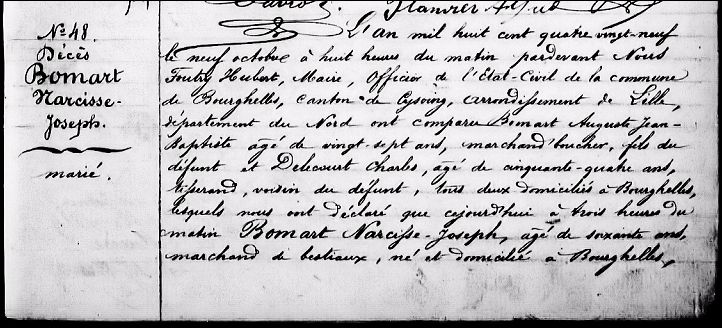 Nº 48.
Décès
Bomart
Narcisse-
Joseph.
marié.
L'An mil huit cent quatre vingt-neuf
le neuf octobre à huit heures du matin pardevant Nous
Hubert, Maire, Officier de l'Etat-Civil de la commune
de Bourghelles, canton de Cysoing, arrondissement de Lille,
département du Nord ont comparu Bomart Auguste Jean-
Baptiste âgé de vingt-sept ans, marchand boucher, fils du
défunt et Delecourt Charles, âgé de cinquante-quatre ans,
tisserand, voisin du défunt, tous deux domiciliés à Bourghelles,
lesquels nous ont déclaré que cejourd'hui à trois heures du
matin Bomart Narcisse-Joseph, âgé de soixante ans,
marchand de bestiaux, né et domicilié à Bourghelles,